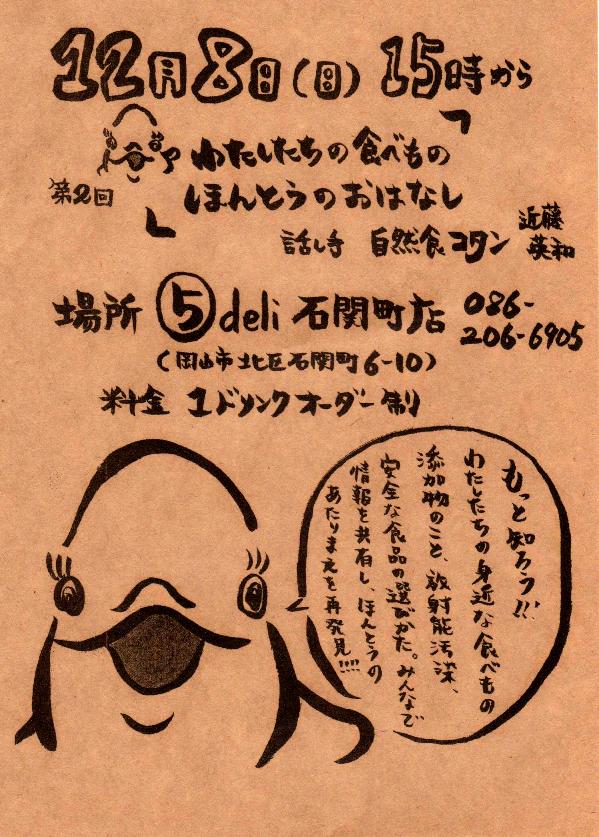 12月8日(日) 15時から
第2回
「わたしたちの食べもの
ほんとうのおはなし」
話し手 自然食コタン 近藤英和
場所 ⑤deli 石関町店 086-206-6905
(岡山市北区石関町6-10)
料金 1ドリンクオーダー制
もっと知ろう!!!
わたしたちの身近な食べもの
添加物のこと、放射能汚染、
安全な食品の選びかた。みんなで
情報を共有し、ほんとうの
あたりまえを再発見!!!!